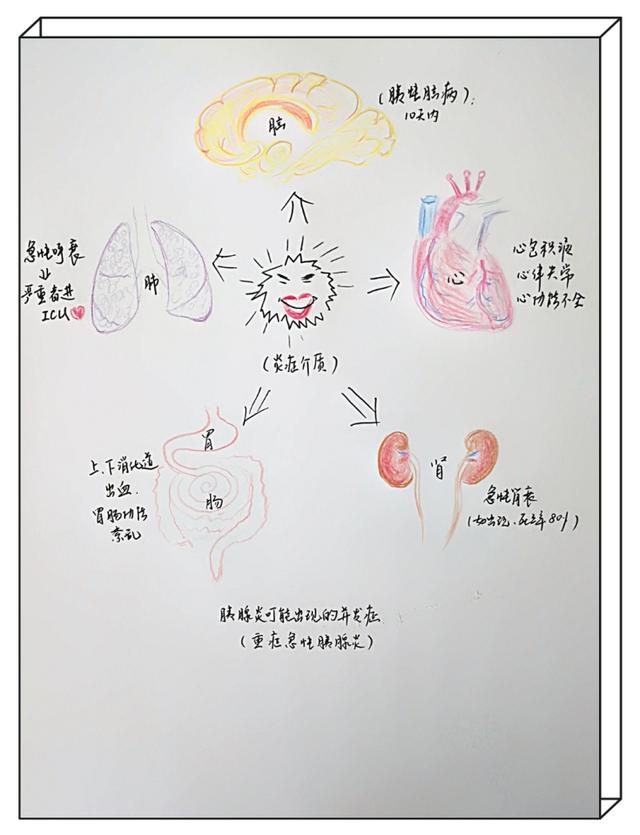 脑
(胰性脑病):
10天内
急性呼衰
↓
严重者进
ICU
肺
心
心包积液
心律失常
心功能不全
(炎症介质)
胃
肠
上、下消化道
出血.
胃肠功能
紊乱
肾
急性肾衰
(如出现,死亡率80%)
胰腺炎可能出现的并发症
(重症急性胰腺炎)